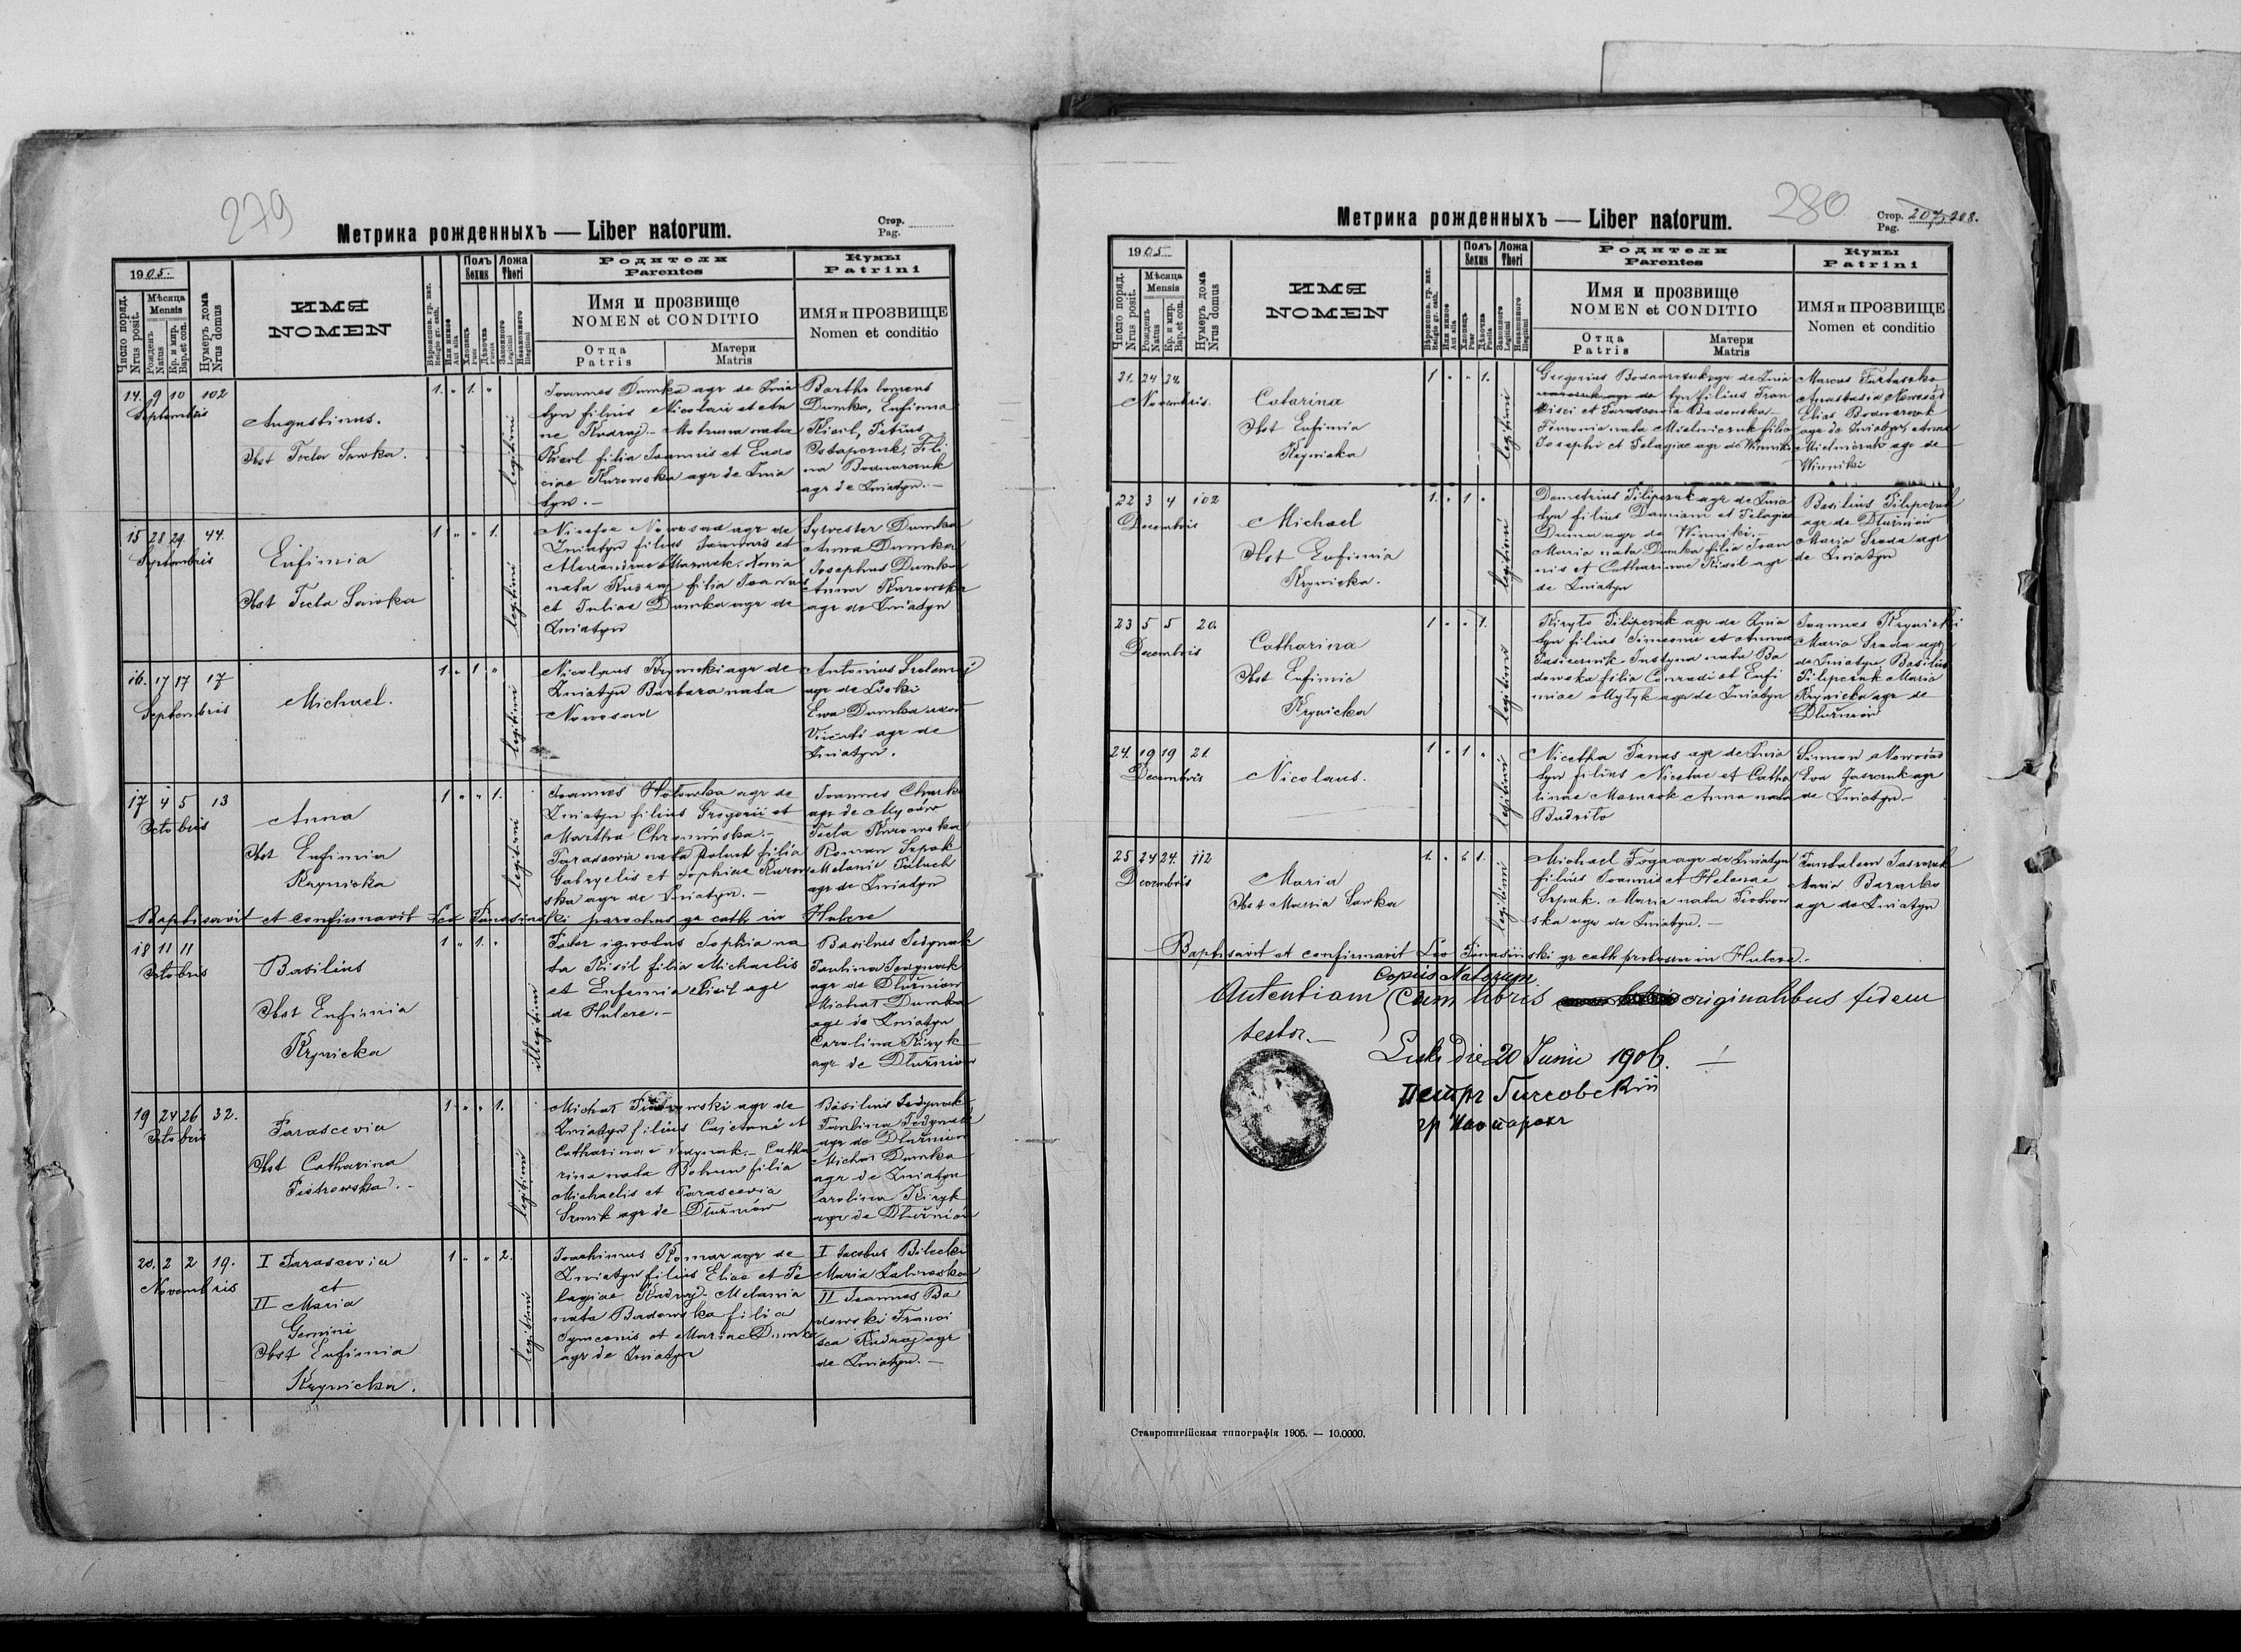 279
Метрика рожденныхъ — Liber natorum.
Стор.
Pag.
1905.
Число поряд.
Nrus posit.
Мѣсяца
Mensis
Рожденъ
Natus
Кр. и мир.
Bap. et con.
Нумеръ дома
Nrus domus
ИМЯ
NOMEN
Вѣроиспов. гр. кат.
Religio gr. cath.
Или инное
Aut alia
Полъ
Sexus
Хлопець
Puer
Дѣвочка
Puella
Ложа
Thori
Законного
Legitimi
Незаконного
Illegitimi
Родители
Parentes
Имя и прозвище
NOMEN et CONDITIO
Отца
Patris
Матери
Matris
Кумы
Patrini
ИМЯ и ПРОЗВИЩЕ
Nomen et conditio
14. 9 10 102
Septembris
Augustinus.
Obst Tecla Sawka.
1. " 1. "
legitimi
Joannes Dumka agr de Żnia
tyn filius Nicolai et An
ne Kudraj - Matrona nata
Kisil filia Joannis et Eudo
ciae Kurowska agr de Żnia
tyn. -
Bartholomeus
Dumka, Eufimia
Kisil, Petrus
Ostapczuk, Feli
na Bodnarczuk
agr de Żniatyn. -
15 28 29. 44.
Septembris
Eufimia
Obst Tecla Sawka
1 " " 1.
legitimi
Nicefor Nowosad agr de
Żniatyn filius Joannis et
Alexandrae Mazurek. Xenia
nata Kudraj filia Joannis
et Juliae Dumka agr de
Żniatyn
Sylvester Dumka
Anna Dumka
Josephus Dumka
Anna Kurowska
agr de Żniatyn
16. 17 17 17
Septembris
Michael.
1 " 1 "
legitimi
Nicolaus Krynicki agr de
Żniatyn Barbara nata
Nowosad
Antonius
agr de Liski
Ewa Dumka uxor
Vincenti agr de
Żniatyn.
17 4 5 13
Octobris
Anna
Obst Eufimia
Krynicka
1 " " 1.
legitimi
Joannes Hołowka agr de
Żniatyn filius Gregorii et
Martha Chromińska. -
Parascevia nata Paluch filia
Gabryelis et Sophiae Kurow
ska agr de Żniatyn. -
Joannes
agr de Myców
Tecla Kurowska
Roman Szpak
Melania Paluch
agr de Żniatyn
Baptisavit et confirmavit Leo Tanasiński parochus gr cath in Hulcze
18 11 11
Octobris
Basilius
Obst Eufimia
Krynicka
1 " 1. "
illegitimi
Pater ignotus Sophia na
ta Kisil filia Michaelis
et Eufemia Kisil agr
de Hulcze. -
Basilius Sedynak
Paulina Sedynak
agr de Dłużniow
Michał Dumka
agr de Żniatyn
Carolina Kiryk
agr de Dłużniow
19 24 26 32.
Octobris
Parascevia
Obst Catharina
Piotrowska. -
1 " " 1.
legitimi
Michał Piotrowski agr de
Żniatyn filius Cajetani et
Catharinae Sedynak. - Catha
rina nata Bohun filia
Michaelis et Parascevia
agr de Dłużniów
Basilius Sedynak
Paulina Sedynak
agr de Dłużniow
Michał Dumka
agr de Żniatyn
Carolina Kiryk
agr de Dłużniów
20. 2 2 19.
Novembris
I Parascevia
et
II Maria
Gemini
Obst Eufimia
Krynicka.
1 " " 2.
legitimi
Joachimus Komar agr de
Żniatyn filius Eliae et Pe
lagiae Kudraj - Melania
nata Badowska filia
Symeonis et Mariae Dumka
agr de Żniatyn
I Jacobus Bilecki
Maria Zalewska
II Joannes Ba
dowski Franci
sca Kudraj agr
de Żniatyn. -
280
Метрика рожденныхъ — Liber natorum.
Стор. 207/208.
Pag.
1905
Число поряд.
Nrus posit.
Мѣсяца
Mensis
Рожденъ
Natus
Кр. и мир.
Bap. et con.
Нумеръ дома
Nrus domus
ИМЯ
NOMEN
Вѣроиспов. гр. кат.
Religio gr. cath.
Или инное
Aut alia
Полъ
Sexus
Хлопець
Puer
Дѣвочка
Puella
Ложа
Thori
Законного
Legitimi
Незаконного
Illegitimi
Родители
Parentes
Имя и прозвище
NOMEN et CONDITIO
Отца
Patris
Матери
Matris
Кумы
Patrini
ИМЯ и ПРОЗВИЩЕ
Nomen et conditio
21. 24 24.
Novembris.
Catarina
Obst Eufimia
Krynicka
1 " " 1.
legitimi
Gregorius Bodnarczuk agr de Żnia
tyn filius Fran
cisci et Parascevia Badowska -
Fewronia nata Mielniczuk filia
Josephi et Pelagiae agr de Winniki
Marcus Furtaszko
Anastasia Nowosad
Elias Bodnarczuk
agr de Żniatyn, Anna
Mielniczuk agr de
Winniki
22 3 4 102
Decembris
Michael
Obst Eufimia
Krynicka.
1. " 1 "
legitimi
Demetrius Pilipczuk agr de Żnia
tyn filius Damiani et Pelagiae
Duma agr de Winniki. -
Maria nata Dumka filia Joan
nis et Catharinae Kisil agr
de Żniatyn
Basilius Pilipczuk
agr de Dłużniow
Maria Sroda agr
de Żniatyn
23 5 5 20.
Decembris
Catharina
Obst Eufimia
Krynicka
1 " " 1.
legitimi
Kiryło Pilipczuk agr de Żnia
tyn filius Simeonis et Annae
Pasicznik - Justyna nata Ba
dowska filia Conradi et Eufi
miae Mytyk agr de Żniatyn
Joannes Krynicki
Maria Sroda agr
de Żniatyn, Basilius
Pilipczuk Maria
Krynicka agr de
Dłużniow
24. 19 19 21.
Decembris
Nicolaus.
1 " 1 "
legitimi
Nicetha Panas agr de Żnia
tyn filius Nicetae et Catha
rinae Mazurok Anna nata
Budziło
Simeon Nowosad
Ewa Jaszczuk agr
de Żniatyn -
25 24 24. 112
Decembris
Maria
Obst Maria Sawka
1. " " 1.
legitimi
Michael Foga agr de Żniatyn
filius Joannis et Helenae
Szpak. Maria nata Piotrow
ska agr de Żniatyn. -
Pantalem
Maria
agr de Żniatyn
Baptisavit et confirmavit Leo Tanasiński gr cath parochus in Hulcze. -
Copiis Natorum
Autentiam cum libris originalibus fidem
testor. -
Liski die 20 Junii 1906.
Петръ
гр
Ставропигійская типографія 1905. — 10.0000.